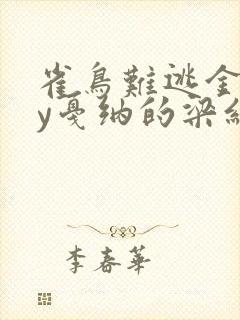 雀鳥難逃金
y戛纳的梁纟
李春華